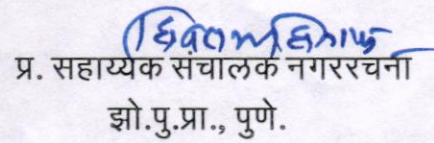 प्र. सहाय्यक संचालक नगररचना
झो.पु.प्रा., पुणे.